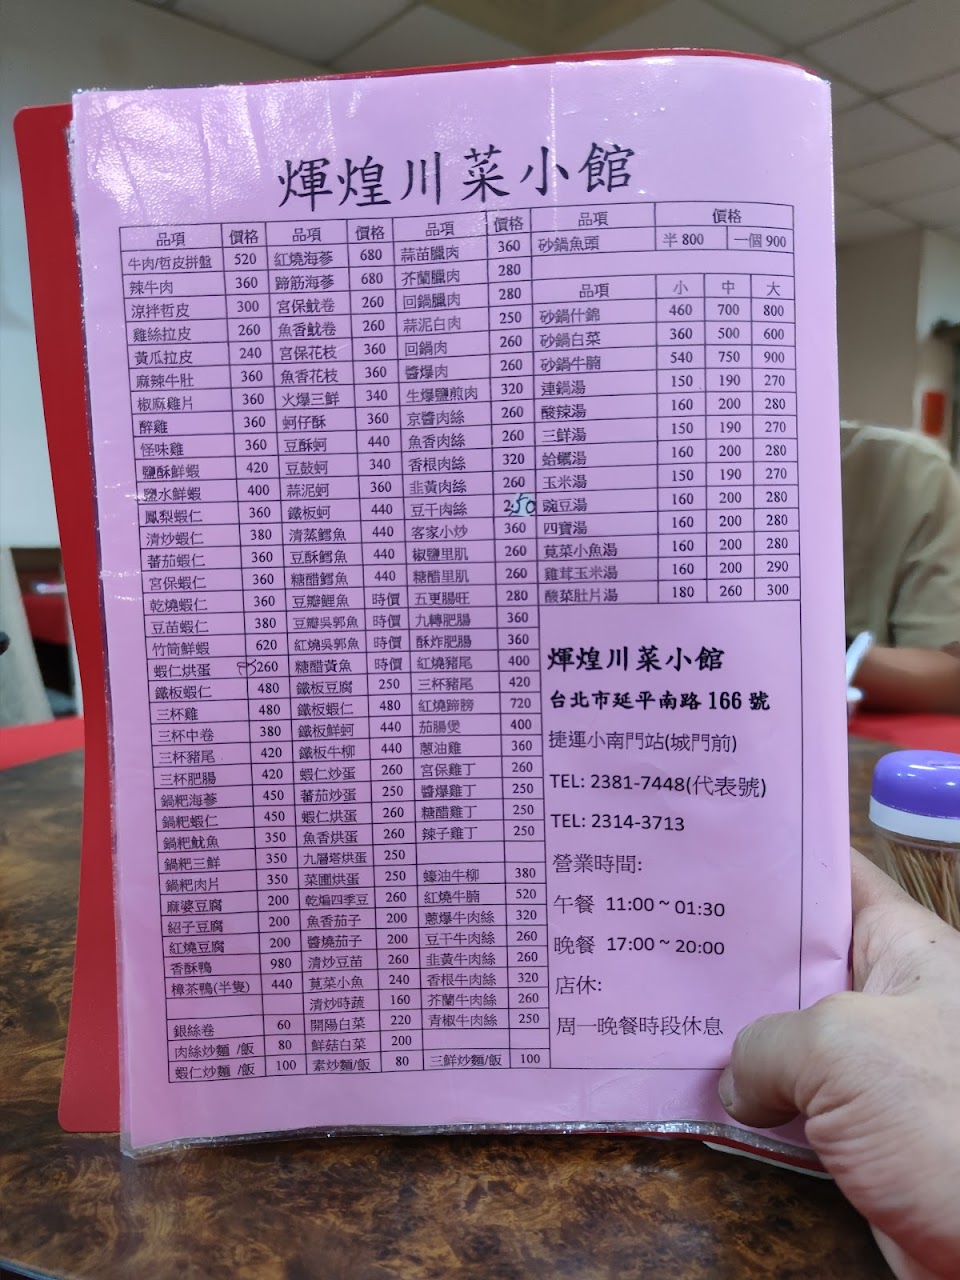 輝煌川菜小館
品項 價格
牛肉/哲皮拼盤 520
辣牛肉 360
涼拌哲皮 300
雞絲拉皮 260
黃瓜拉皮 240
麻辣牛肚 360
椒麻雞片 360
醉雞 360
怪味雞 360
鹽酥鮮蝦 420
鹽水鮮蝦 400
鳳梨蝦仁 360
清炒蝦仁 380
蕃茄蝦仁 360
宮保蝦仁 360
乾燒蝦仁 360
豆苗蝦仁 380
竹筒鮮蝦 620
蝦仁烘蛋 260
鐵板蝦仁 480
三杯雞 480
三杯中卷 380
三杯豬尾 420
三杯肥腸 420
鍋粑海蔘 450
鍋粑蝦仁 450
鍋粑魷魚 350
鍋粑三鮮 350
鍋粑肉片 350
麻婆豆腐 200
紹子豆腐 200
紅燒豆腐 200
香酥鴨 980
樟茶鴨(半隻) 440
銀絲卷 60
肉絲炒麵 /飯 80
蝦仁炒麵 /飯 100
品項 價格
紅燒海蔘 680
蹄筋海蔘 680
宮保魷卷 260
魚香魷卷 260
宮保花枝 360
魚香花枝 360
火爆三鮮 340
蚵仔酥 360
豆酥蚵 440
豆鼓蚵 340
蒜泥蚵 360
鐵板蚵 440
清蒸鱈魚 440
豆酥鱈魚 440
糖醋鱈魚 440
豆瓣鯉魚 時價
豆瓣吳郭魚 時價
紅燒吳郭魚 時價
糖醋黃魚 時價
鐵板豆腐 250
鐵板蝦仁 480
鐵板鮮蚵 440
鐵板牛柳 440
蝦仁炒蛋 260
蕃茄炒蛋 250
蝦仁烘蛋 260
魚香烘蛋 260
九層塔烘蛋 250
菜圃烘蛋 250
乾煸四季豆 260
魚香茄子 200
醬燒茄子 200
清炒豆苗 260
莧菜小魚 240
清炒時蔬 160
開陽白菜 220
鮮菇白菜 200
素炒麵/飯 80
品項 價格
蒜苗臘肉 360
芥蘭臘肉 280
回鍋臘肉 280
蒜泥白肉 250
回鍋肉 260
醬爆肉 260
生爆鹽煎肉 320
京醬肉絲 260
魚香肉絲 260
香根肉絲 320
韭黃肉絲 260
豆干肉絲 250
客家小炒 360
椒鹽里肌 260
糖醋里肌 260
五更腸旺 280
九轉肥腸 360
酥炸肥腸 360
紅燒豬尾 400
三杯豬尾 420
紅燒蹄膀 720
茄腸煲 400
蔥油雞 360
宮保雞丁 260
醬爆雞丁 250
糖醋雞丁 250
辣子雞丁 250
蠔油牛柳 380
紅燒牛腩 520
蔥爆牛肉絲 320
豆干牛肉絲 260
韭黃牛肉絲 260
香根牛肉絲 320
芥蘭牛肉絲 260
青椒牛肉絲 250
三鮮炒麵/飯 100
品項 價格
砂鍋魚頭 半 800 一個 900
品項 小 中 大
砂鍋什錦 460 700 800
砂鍋白菜 360 500 600
砂鍋牛腩 540 750 900
連鍋湯 150 190 270
酸辣湯 160 200 280
三鮮湯 150 190 270
蛤蠣湯 160 200 280
玉米湯 150 190 270
豌豆湯 160 200 280
四寶湯 160 200 280
莧菜小魚湯 160 200 280
雞茸玉米湯 160 200 290
酸菜肚片湯 180 260 300
輝煌川菜小館
台北市延平南路 166 號
捷運小南門站(城門前)
TEL: 2381-7448(代表號)
TEL: 2314-3713
營業時間:
午餐 11:00 ~ 01:30
晚餐 17:00 ~ 20:00
店休:
周一晚餐時段休息